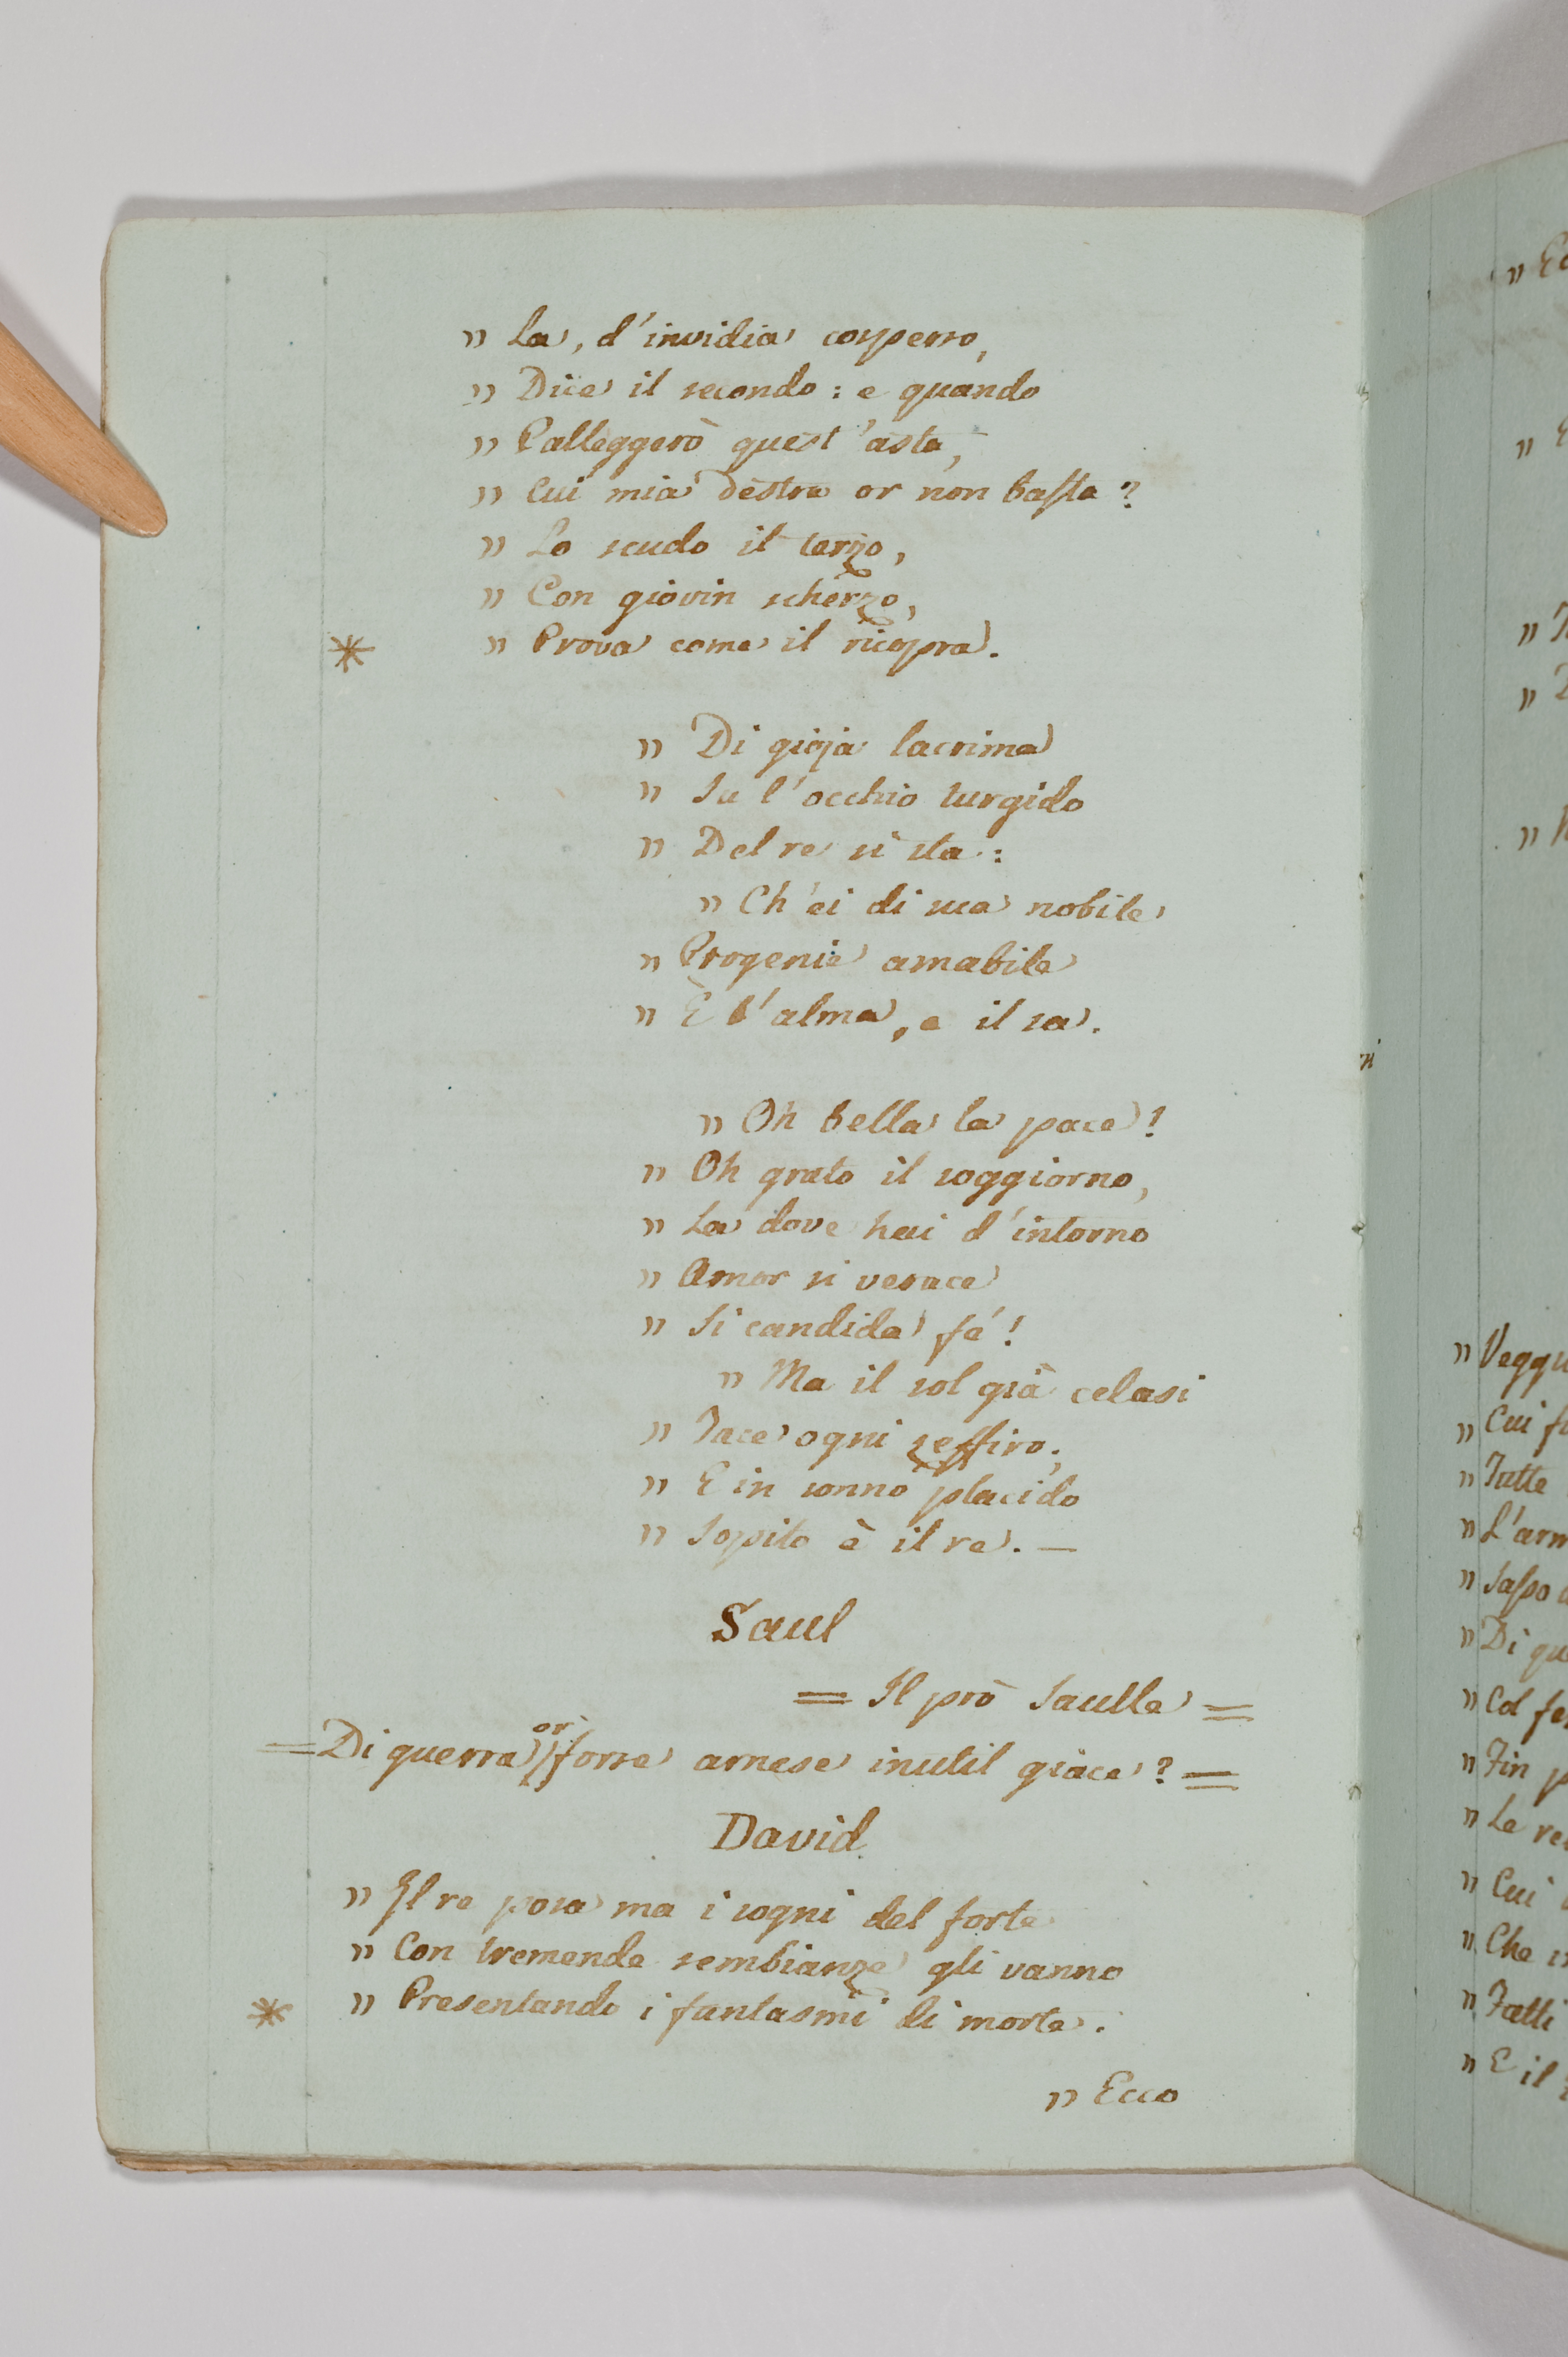 „ La, d'invidia cosperso,
„ Dice il secondo: e quando
„ Palleggerò quest'asta,
„ Cui mia destra or non basta?
„ Lo scudo il terzo,
„ Con giovin scherzo,
* „ Prova come il ricopra.
„ Di gioja lacrima
„ Su l'occhio turgido
„ Del re si sta:
„ Ch'ei di sua nobile
„ Progenie amabile
„ È l'alma, e il sa.
„ Oh bella la pace!
„ Oh grato il soggiorno,
„ La dove hai d'intorno
„ Amor si verace
„ Si candida fé!
„ Ma il sol già celasi
„ Tace ogni zeffiro;
„ E in sonno placido
„ Sopito è il re. —
Saul
= Il prò Saulle =
= Di guerra or forse arnese inutil giace? =
David
„ Il re posa ma i sogni del forte
„ Con tremende sembianze gli vanno
* „ Presentando i fantasmi di morte.
„ Ecco
„ Cui
„ Tutte
„ L'arm
„ Sasso
„ Di qu
„ Col fe
„ Fin p
„ Le re
„ Cui
„ Che
„ Fatti
„ E il